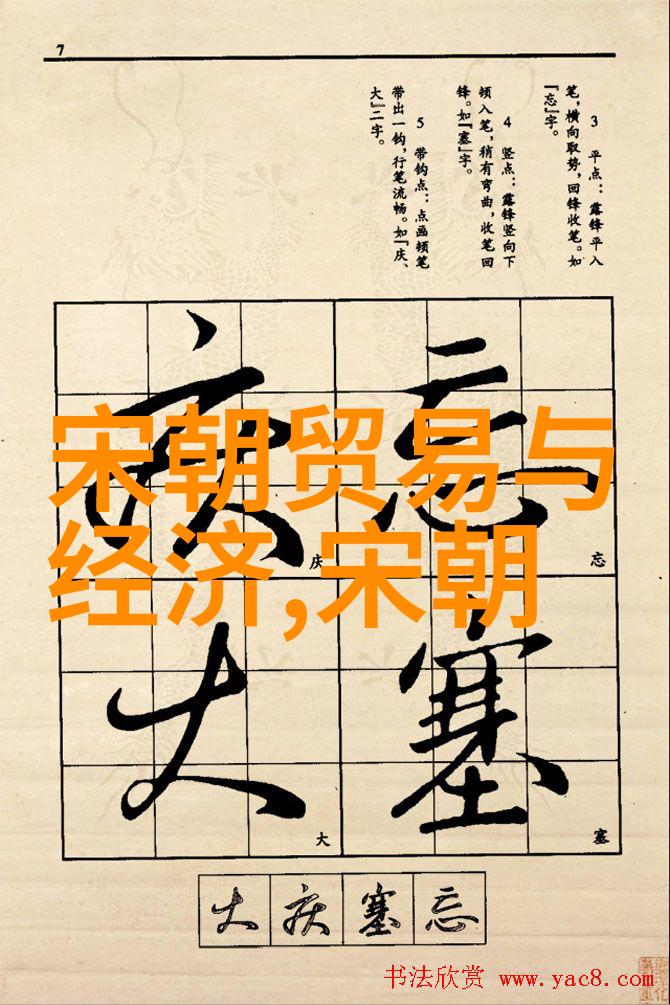 7
3 平点：露锋平入
笔，横向取势，回锋收笔。如
『忘』字。
4 竖点：露锋竖向下
顿入笔，稍有弯曲，收笔回
锋。如『塞』字。
5 带钩点：点画顿笔
带出一钩，行笔流畅。如『庆、
大』二字。
忘
忘
塞
塞
庆
庆
大
大
宋朝贸易与
经济,宋朝
大 庆 塞 忘
书法欣赏 www.yac8.com